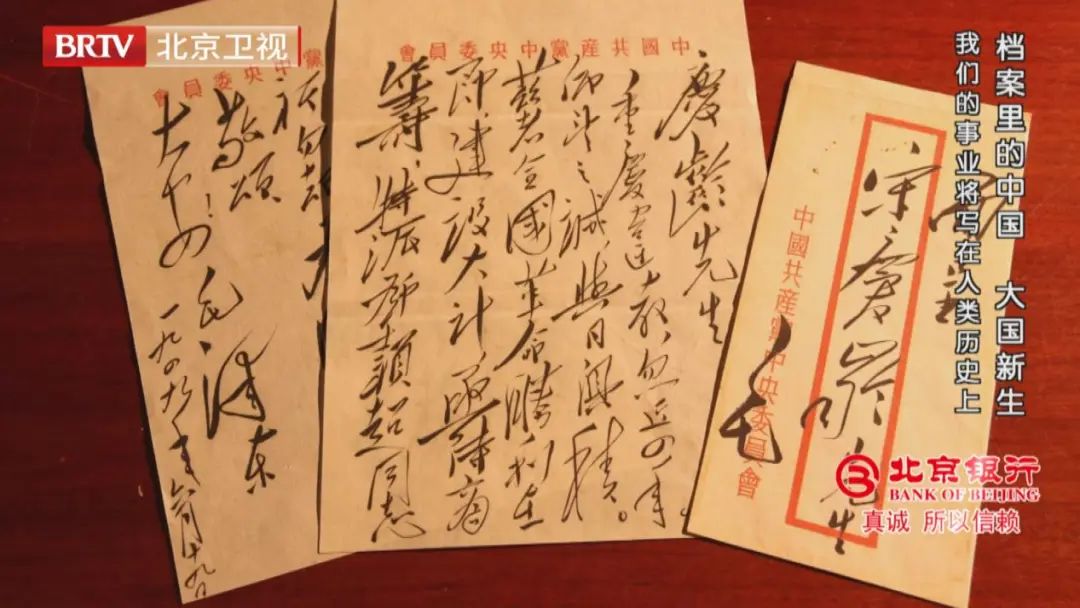 BRTV 北京卫视
档案里的中国 大国新生
我们的事业将写在人类历史上
面呈
宋慶齡先生
毛
中國共産黨中央委員會
中國共産黨中央委員會
慶齡先生
重慶違教忽近四年。
仰望之誠與日俱積。
茲者全國革命勝利在
即建設大計亟待商
籌，特派鄧穎超同志
黨中央委員會
祈勿却
敬頌
大安！
毛澤東
一九四九年六月十九日
北京银行
BANK OF BEIJING
真诚 所以信赖